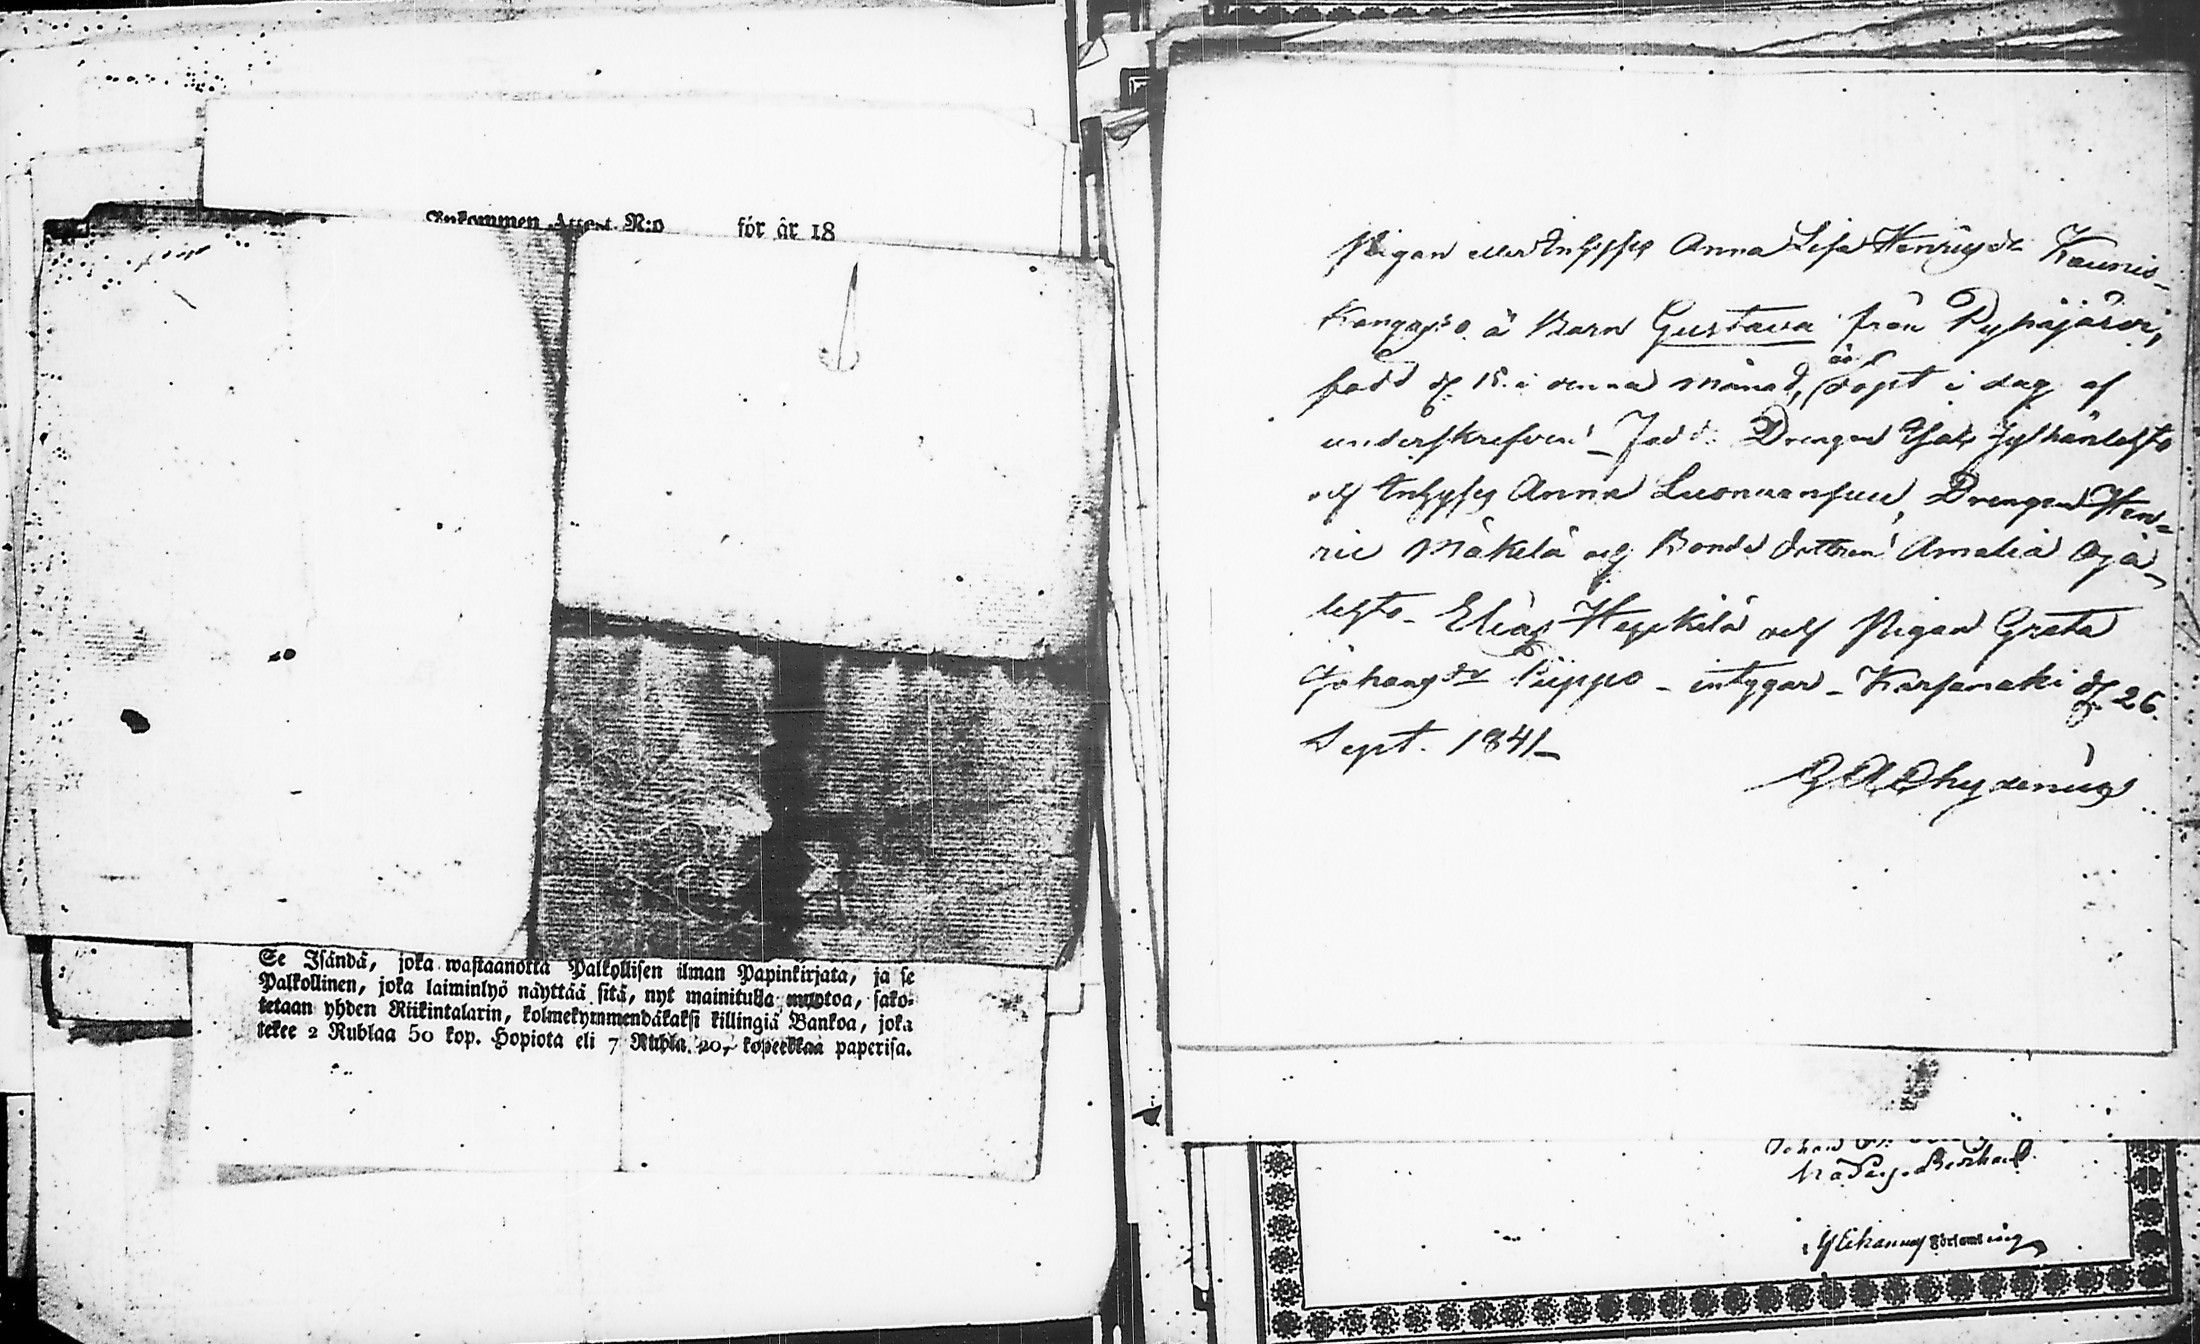 Inkommen Attest N:o för år 18
Se Isändä, joka wastaanotta Palkollisen ilman Papinkirjata, ja se
Palkollinen, joka laiminlyö näyttää sitä, nyt mainitulla muotoa, sako-
tetaan yhden Riikintalarin, kolmekymmendäkaksi killingiä Bankoa, joka
tekee 2 Rublaa 50 kop. Hopiota eli 7 Rubla 20, kopeekkaa paperisa.
Pigan eller Inhyses Anna Lisa Henricsdr Kaunis-
Kangas's ä Barn Gustava från Pyhäjärvi,
född d. 15. i denna månad, är döpt i dag af
underskrefven. Fadd: Drengen Isak Jylhänlehto
och Inhyses Anna Luomansuu, Drengen Hen-
ric Mäkelä och Bonde dottren Amalia Oja-
lehto - Elias Heikkilä och Pigan Greta
Johansdr Piippo - intygar - Kärsämäki d. 26.
Sept. 1841 -
Chydenius
Församling